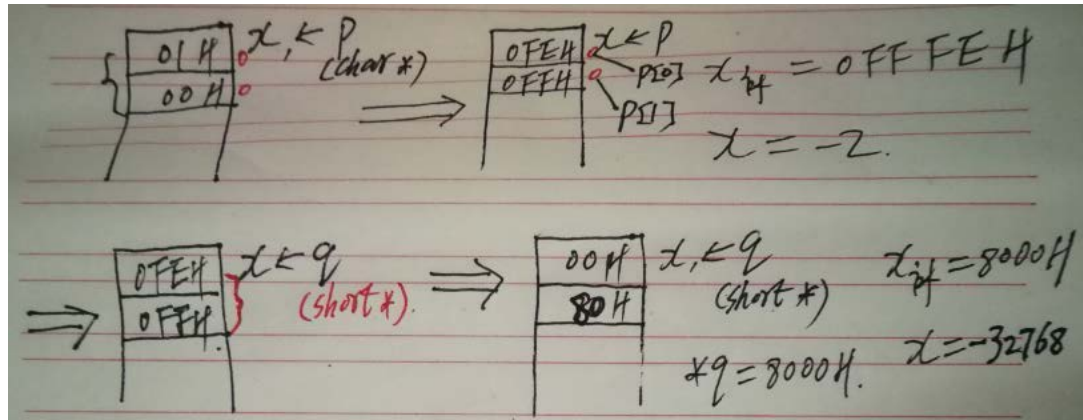 01H x, ← p
(char *)
00H
0FEH x ← p
0FFH p[0]
p[1]
x补 = 0FFFEH
x = -2.
0FEH x ← q
0FFH (short *).
00H x, ← q
80H (short *)
*q = 8000H.
x补 = 8000H
x = -32768